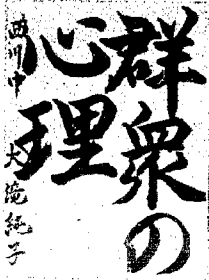 群衆の
心理
西川中 大滝純子